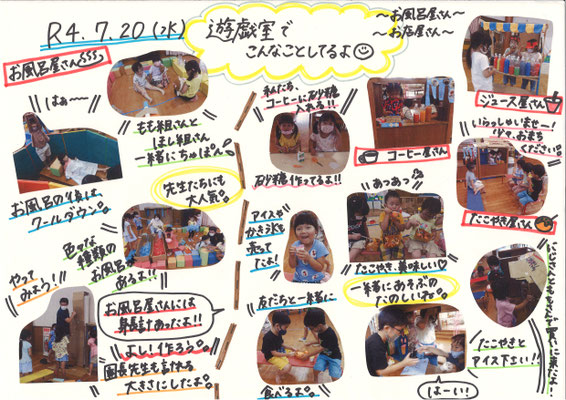 R4.7.20(水)
遊戯室で
こんなことしてるよ
～お風呂屋さん～
～お店屋さん～
お風呂屋さん
はぁ～
もも組さんと
ほし組さん
一緒にちゃぽん。
お風呂の後は
クールダウン。
先生たちにも
大人気。
色々な
種類の
お風呂
あるよ!!
やって
みよう!!
お風呂屋さんには
身長計あったよ!!
よし!作ろう。
園長先生も測れる
大きさにしたよ。
私たち、
コーヒーに砂糖
入れる!!
砂糖作ってるよ!!
アイスや
かき氷も
売って
たよ!
友だちと一緒に
食べるよ。
コーヒー屋さん
あつあつ
たこやき、美味しい♡
一緒にあそぶの
たのしいね。
はーい!
ジュース屋さん
いらっしゃいませー!
少々、おまち
ください。
たこやき屋さん
たこやきと
アイス下さい!!